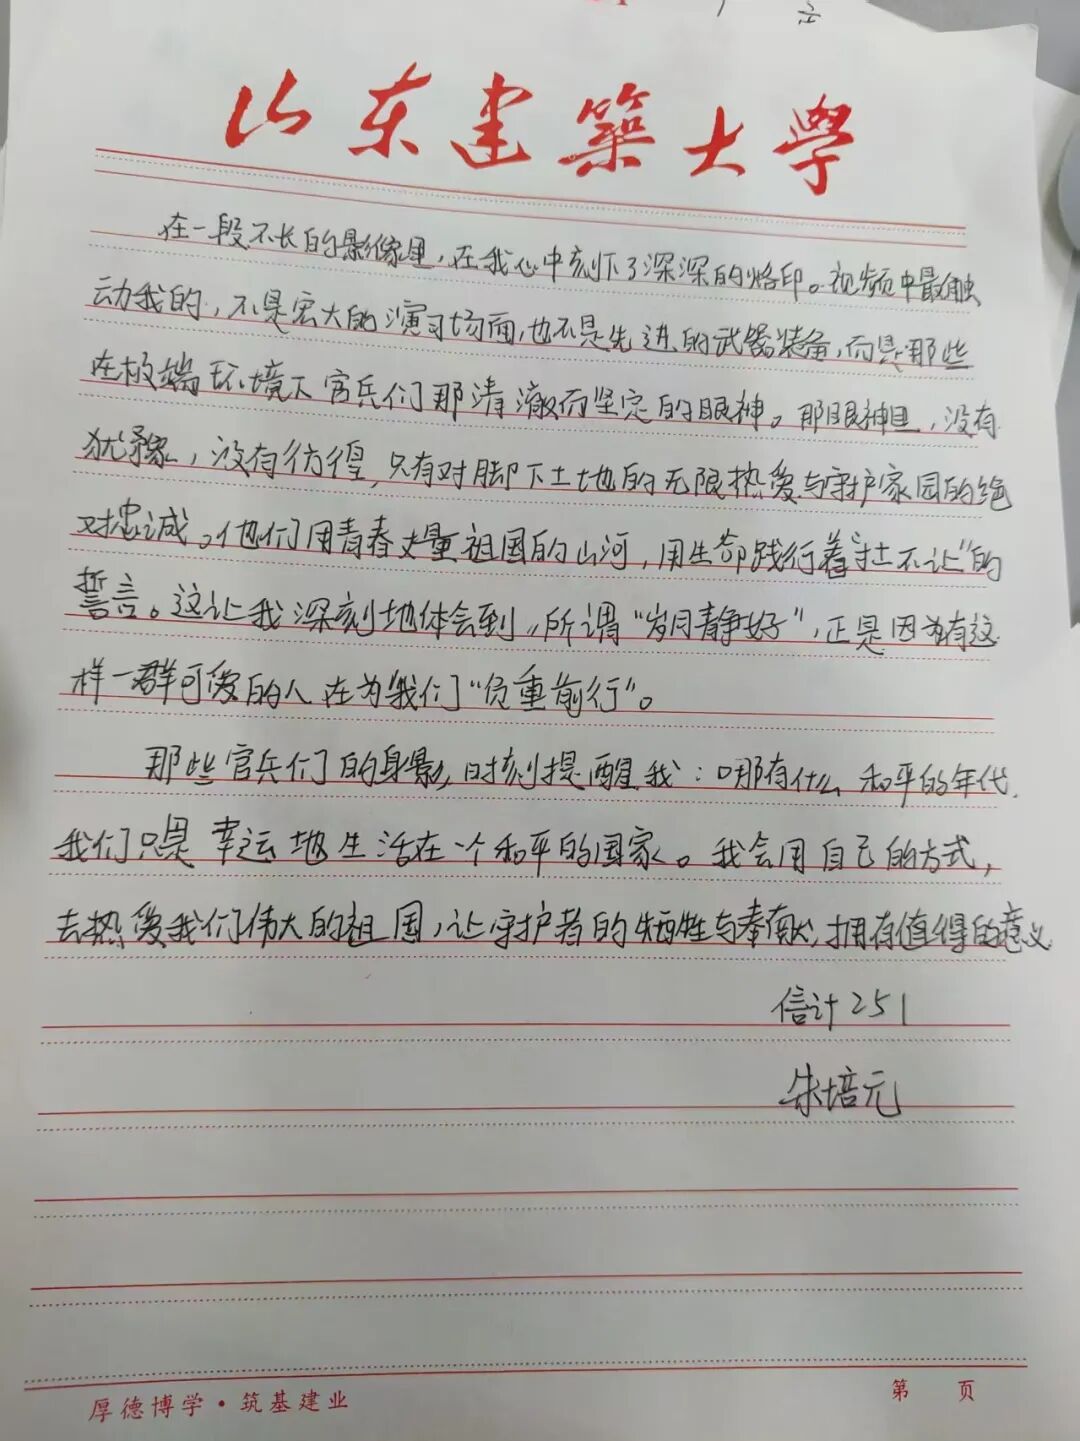 山东建筑大学
在一段不长的影像里,在我心中刻下了深深的烙印。视频中最触
动我的,不是宏大的演习场面,也不是先进的武器装备,而是那些
在极端环境下官兵们那清澈而坚定的眼神。那眼神里,没有
犹豫,没有彷徨,只有对脚下土地的无限热爱与守护家园的绝
对忠诚。他们用青春丈量祖国的山河,用生命践行着“寸土不让”的
誓言。这让我深刻地体会到,所谓“岁月静好”,正是因为有这
样一群可爱的人在为我们“负重前行”。
那些官兵们的身影,时刻提醒我:哪有什么和平的年代,
我们只是幸运地生活在一个和平的国家。我会用自己的方式,
去热爱我们伟大的祖国,让守护者的牺牲与奉献,拥有值得的意义
信计251
朱培元
厚德博学·筑基建业
第 页